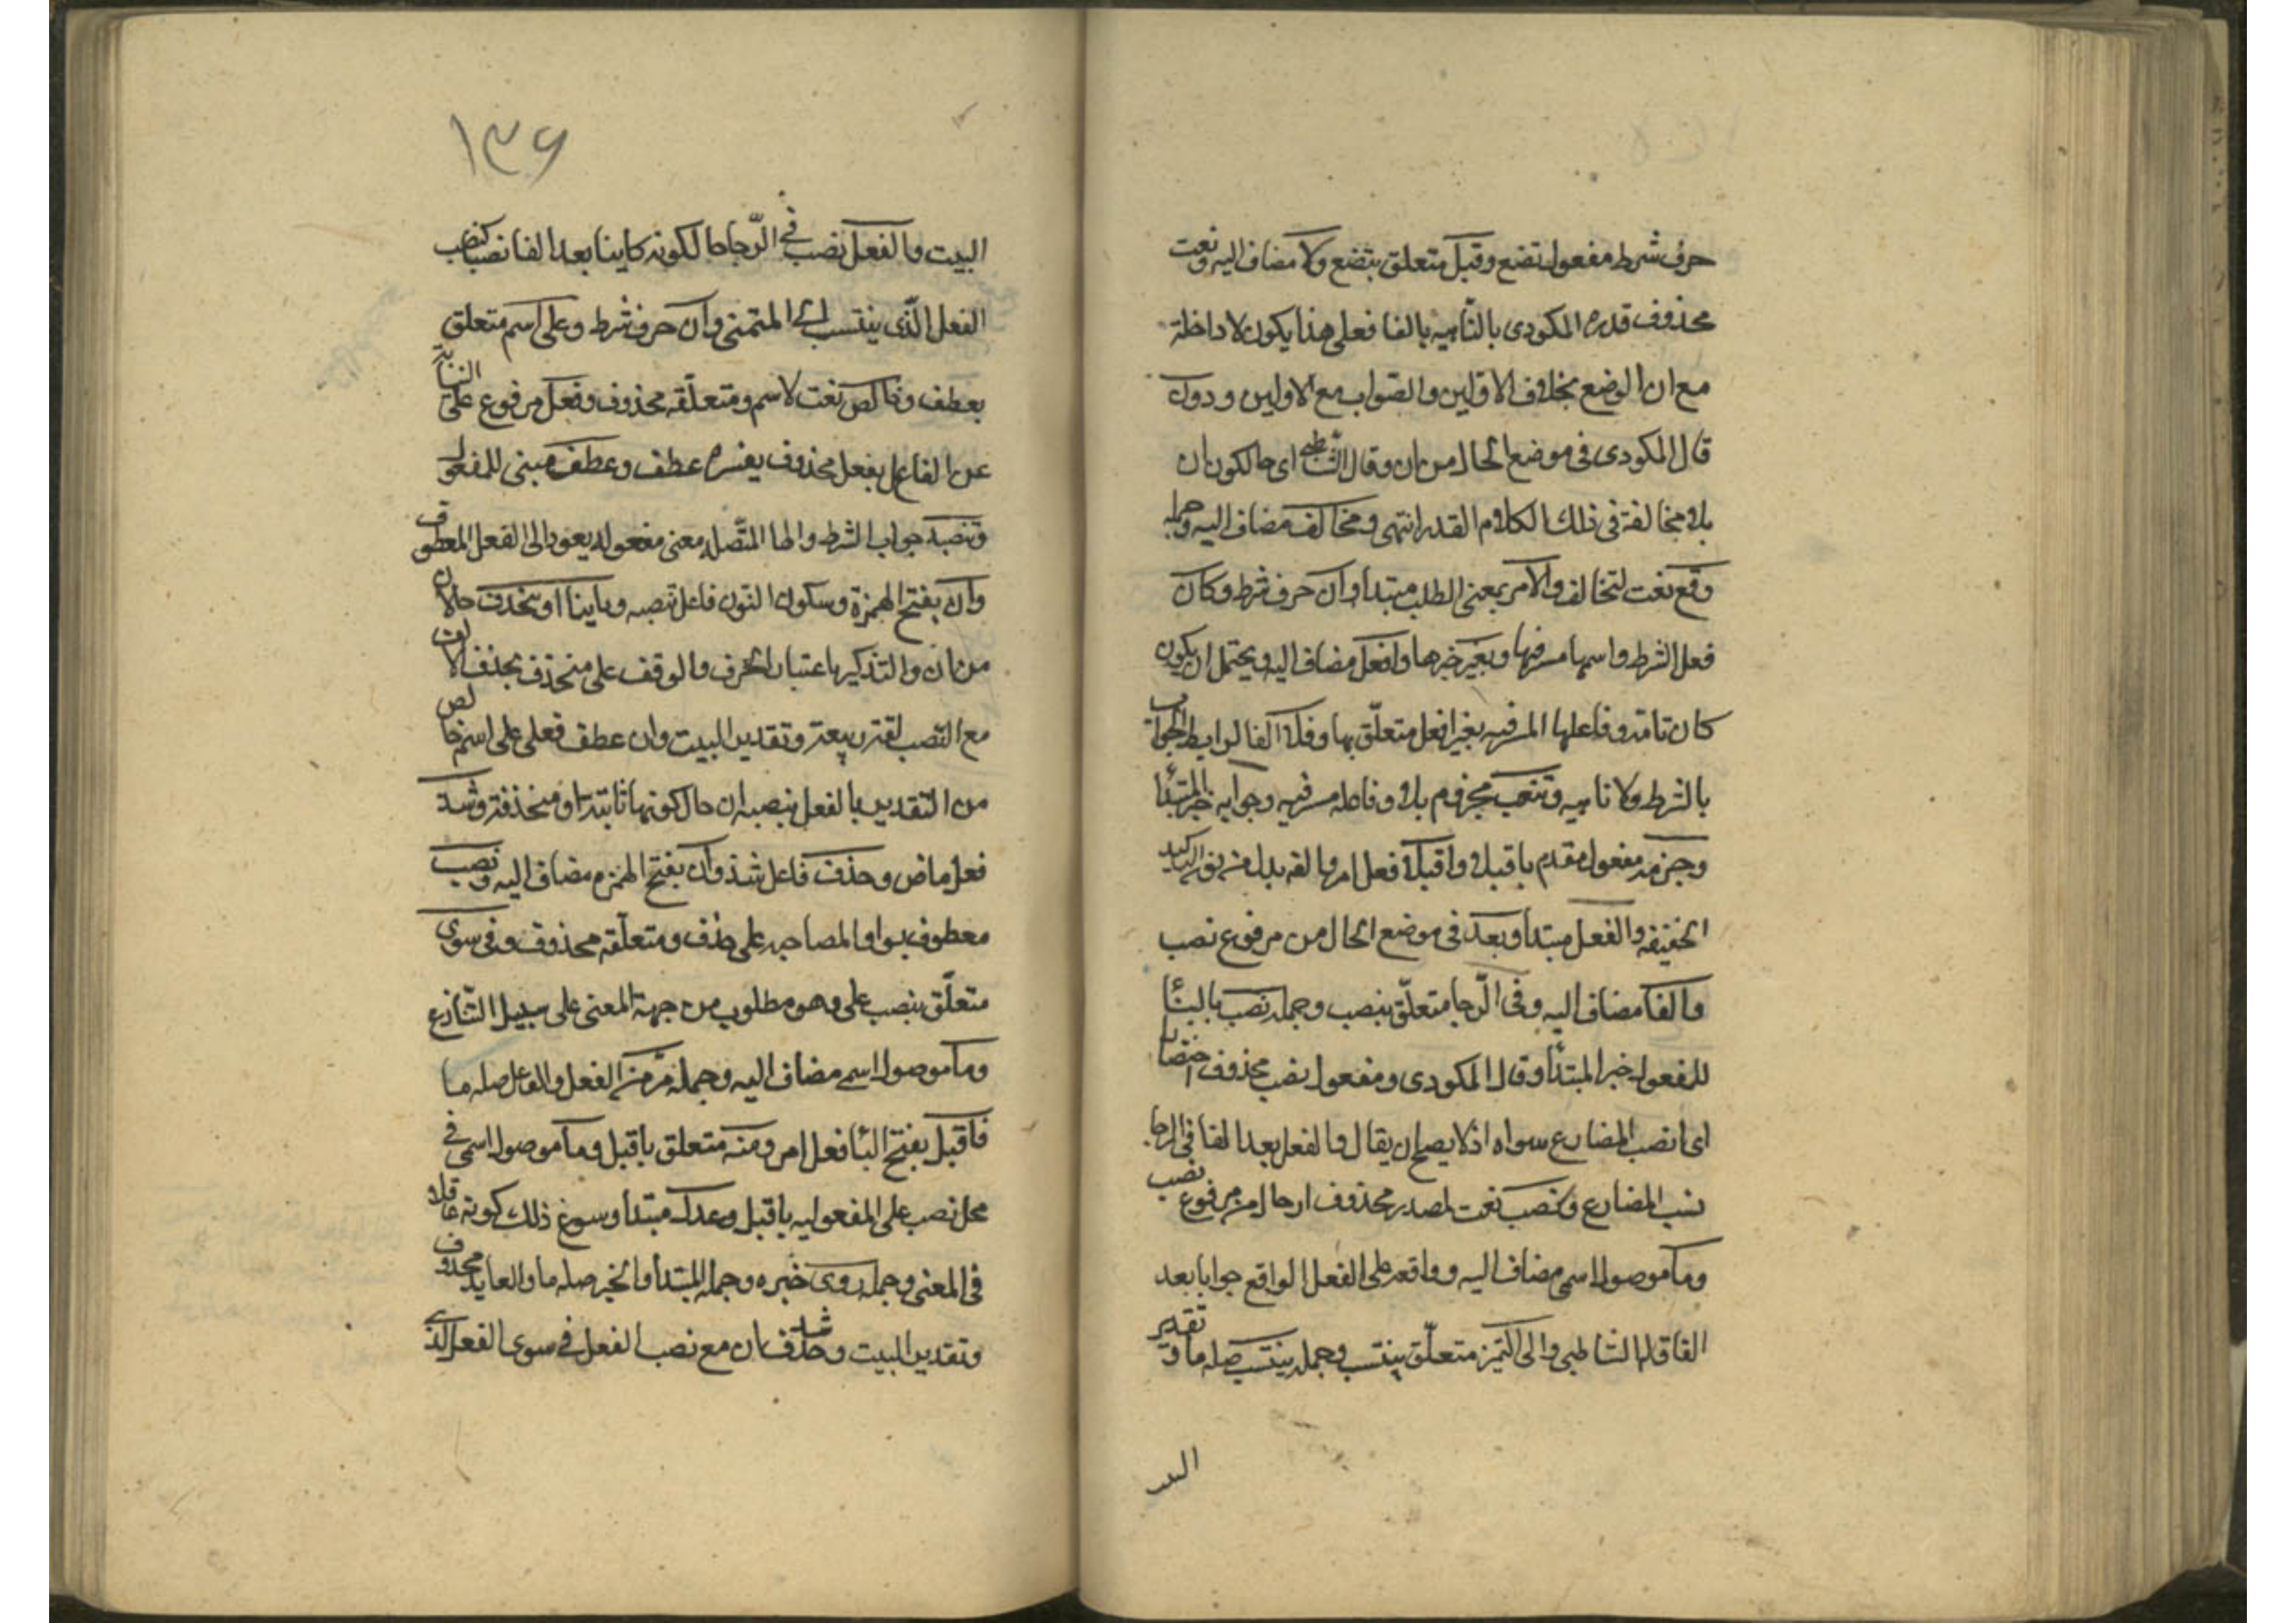 حرف شرط مفعول تضع وقبل متعلق بتضع ولا مضاف اليه ونعت
محذوف قدره المكودى بالناهيه بالفا فعلى هذا يكون لا داخلة
مع ان الوضع بخلاف الاولين والصواب مع الاولين ودون
قال المكودى فى موضع الحال من ان وقال الشاطبى اى حال كون ان
بلا مخالفة فى ذلك الكلام القدر انتهى ومخالف مضاف اليه وجمله
وقع نعت لتخالف والامر بمعنى الطلب مبتدا وان حرف شرط وكان
فعل الشرط واسمها مسر فيها وبغير خبرها وافعل مضاف اليه ويحتمل ان يكون
كان تامة وفاعلها المسر فيه بغير افعل متعلّق بها وفلا الفا لرابط الجواب
بالشرط ولا ناهيه وتنصب مجزوم بلا وفاعله مسر فيه وجوابه خبر المبتدا
وجزمه مفعول مقدم باقبلا واقبلا فعل امر والفه بدل من نون التاكيد
الخفيفه والفعل مبتدا وبعد فى موضع الحال من مرفوع نصب
والفا مضاف اليه وفى الرّجا متعلّق بنصب وجمله نصب بالبنا
للمفعول خبر المبتدا وقال المكودى ومفعول نصب محذوف اختصارا
اى انصب المضارع سواه اذ لا يصلح ان يقال والفعل بعد الفا فى الرجا
نسب المضارع وكنصب نعت لمصدر محذوف او حال من مرفوع نصب
وما موصول اسمى مضاف اليه وواقعه على الفعل الواقع جوابا بعد
الفا قاله الشاطبى والى التمنى متعلّق بينتسب وجمله ينتسب صله ما وتقدير
البيت
١٣۶
البيت والفعل نصب فى الرّجا حال كونه كاينا بعد الفا نصبا كنصب
الفعل الّذى ينتسب الى المتمنى وان حرف شرط وعلى اسم متعلق
بعطف وخالص نعت لاسم ومتعلّقه محذوف وفعل مرفوع على النيابة
عن الفاعل بفعل محذوف يفسره عطف وعطف مبنى للمفعول
وتنصبه جواب الشرط والها المتّصله معنى مفعوله يعود الى الفعل المعطوف
وان بفتح الهمزة وسكون النون فاعل تنصبه وثابتا او منحذف حالان
من ان والتذكير باعتبار الحرف والوقف على منحذف بحذف الالف
مع النصب لغة ربيعة وتقدير البيت وان عطف فعل على اسم خالص
من التقدير بالفعل ينصبه ان حال كونها ثابتة او منحذفة وشذ
فعل ماض وحذف فاعل شذ وان بفتح الهمزه مضاف اليه ونصب
معطوف بواو المصاحبه على حذف ومتعلّقه محذوف وفى سوى
متعلّق بنصب على وهو مطلوب من جهة المعنى على سبيل التنازع
وما موصول اسمى مضاف اليه وجمله مّر من الفعل والفاعل صله ما
فاقبل بفتح البا فعل امر ومنه متعلق باقبل وما موصول اسمى فى
محل نصب على المفعوليه باقبل وعدل مبتدا وسوغ ذلك كونه فاعلا
فى المعنى وجمله روى خبره وجمله المبتدا والخبر صله ما والعايد محذوف
وتقدير البيت وشذ حذف ان مع نصب الفعل فى سوى الفعل الذى